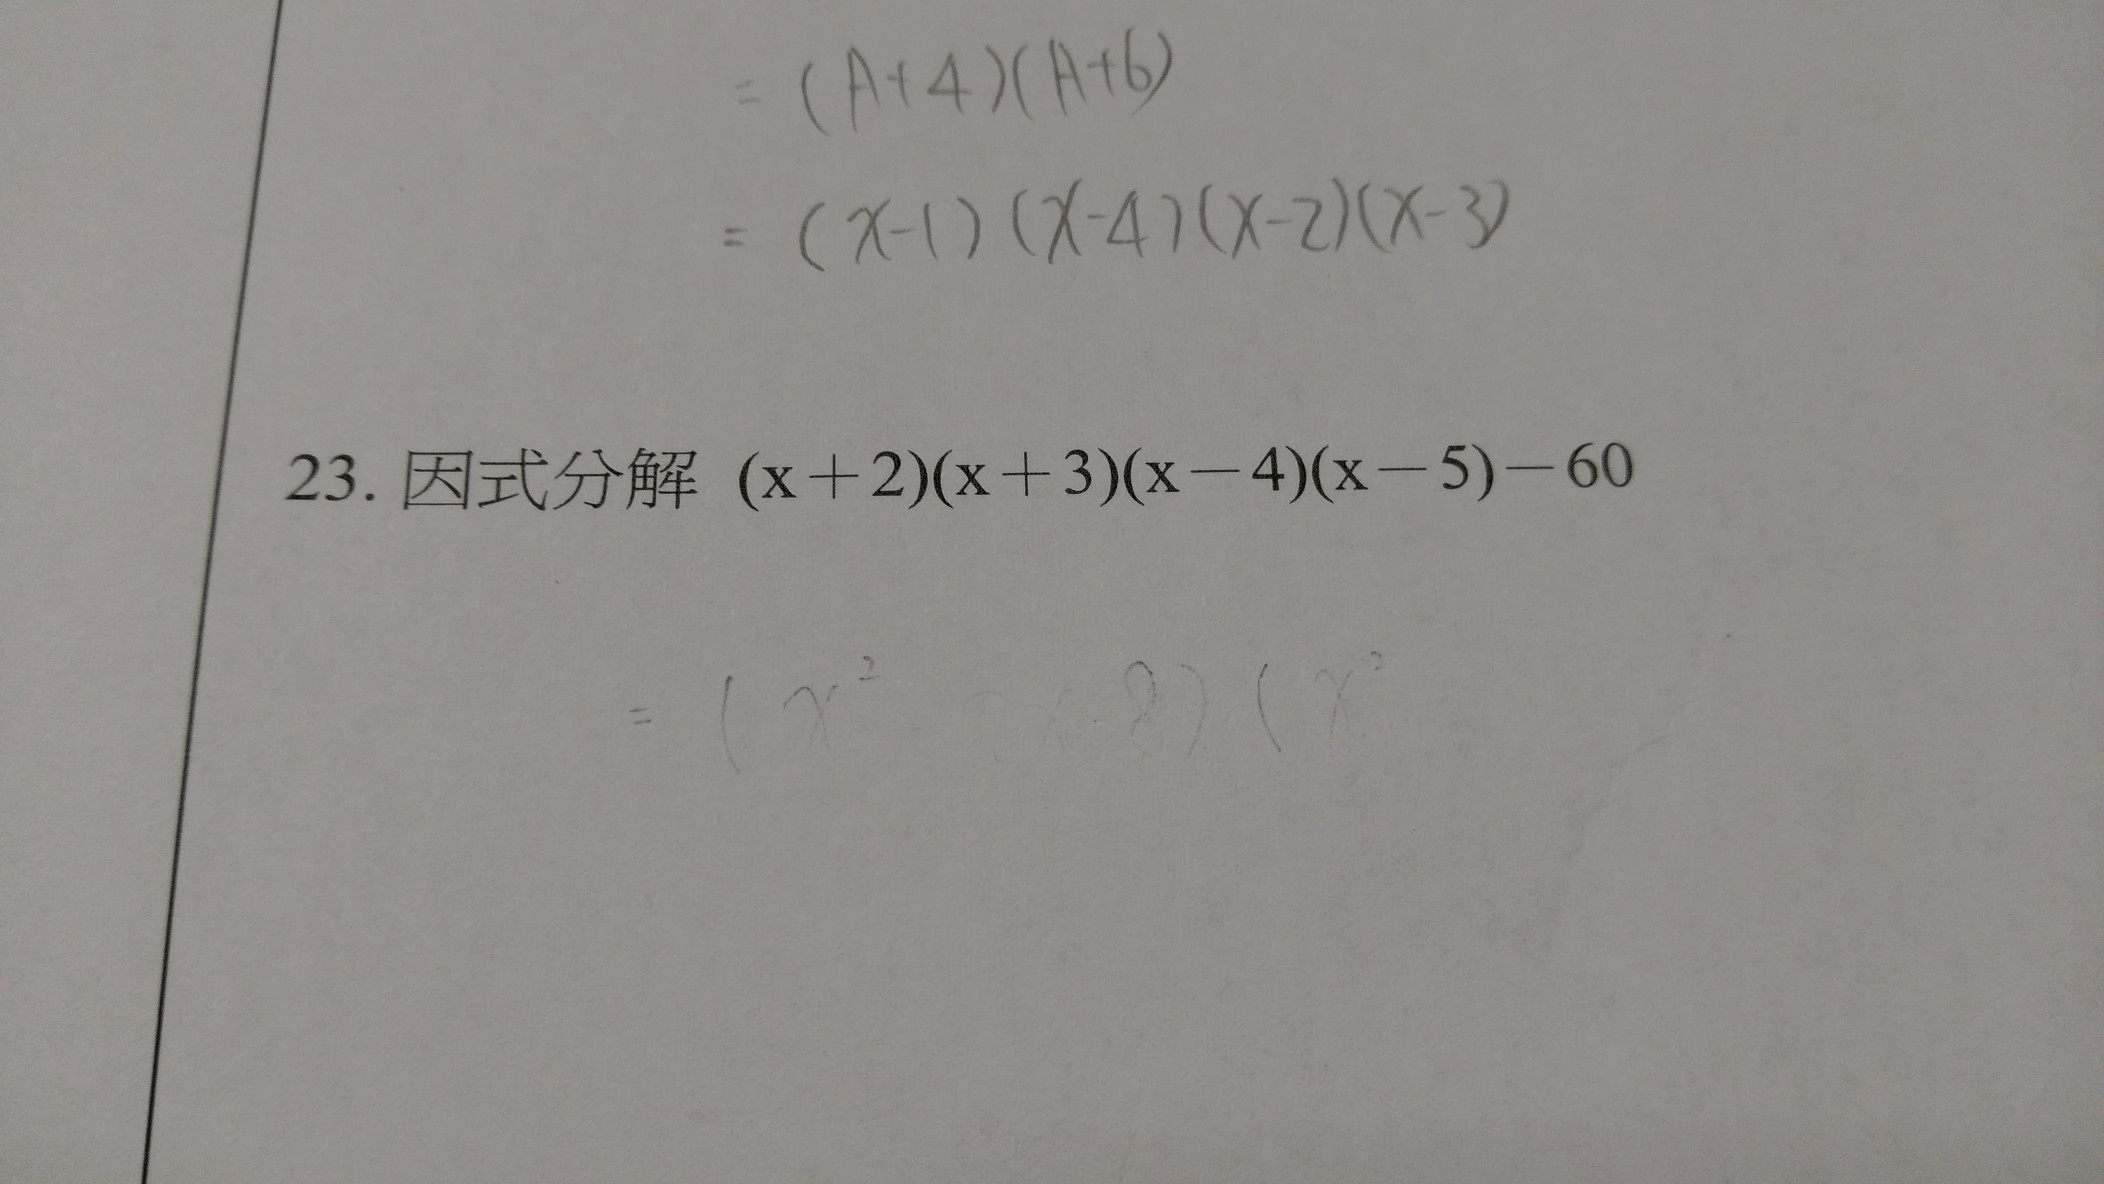 = (A+4)(A+6)
= (x-1)(x-4)(x-2)(x-3)
23. 因式分解 (x+2)(x+3)(x-4)(x-5)-60
= (x² 2x-8)(x²